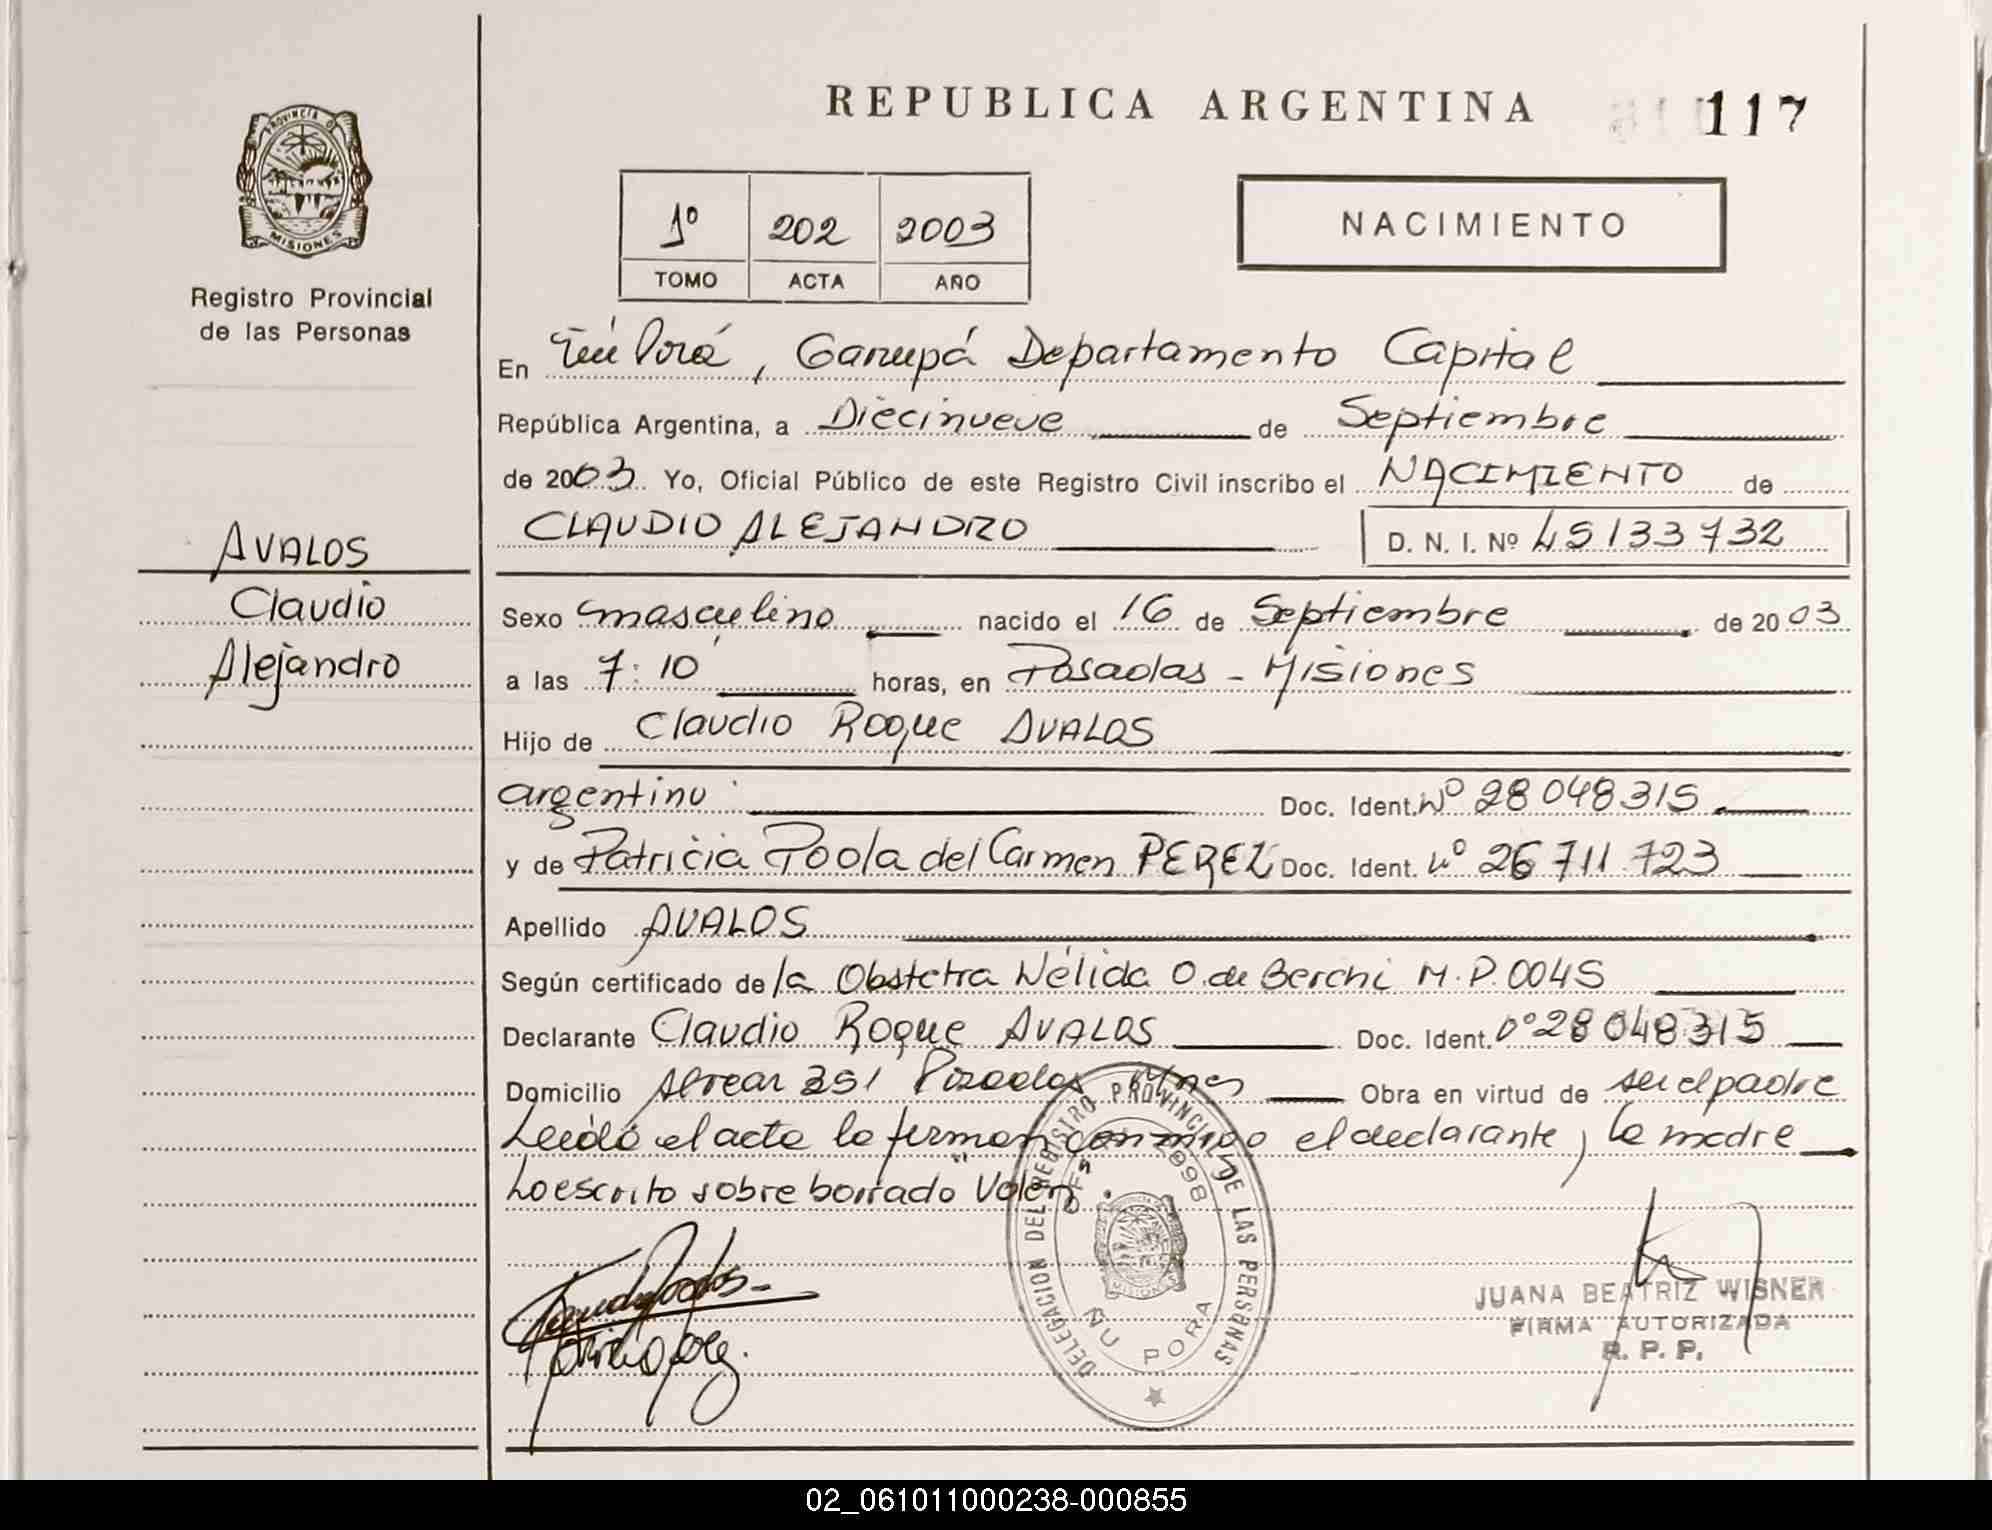 REPUBLICA ARGENTINA
117
PROVINCIA DE
MISIONES
Registro Provincial
de las Personas
1º 202 2003
TOMO ACTA AÑO
NACIMIENTO
En Ñu Porá, Garupá Departamento Capital
República Argentina, a Diecinueve de Septiembre
de 2003 Yo, Oficial Público de este Registro Civil inscribo el NACIMIENTO de
CLAUDIO ALEJANDRO D. N. I. Nº 45133732
AVALOS
Claudio
Alejandro
Sexo masculino nacido el 16 de Septiembre de 2003
a las 7:10 horas, en Posadas - Misiones
Hijo de Claudio Roque AVALOS
argentino Doc. Ident. Nº 28 048315
y de Patricia Paola del Carmen PEREZ Doc. Ident. Nº 26 711 723
Apellido AVALOS
Según certificado de la Obstetra Nélida O. de Berchi M.P. 0045
Declarante Claudio Roque AVALOS Doc. Ident. Nº 28 048315
Domicilio Alvear 351 Mnes Obra en virtud de ser el padre
Leída el acta la firman conmigo el declarante, la madre
Lo escrito sobre borrado "Vale"
DELEGACION DEL REGISTRO PROVINCIAL DE LAS PERSONAS
2898
ÑU PORA
JUANA BEATRIZ WISNER
FIRMA AUTORIZADA
R. P. P.
02_061011000238-000855